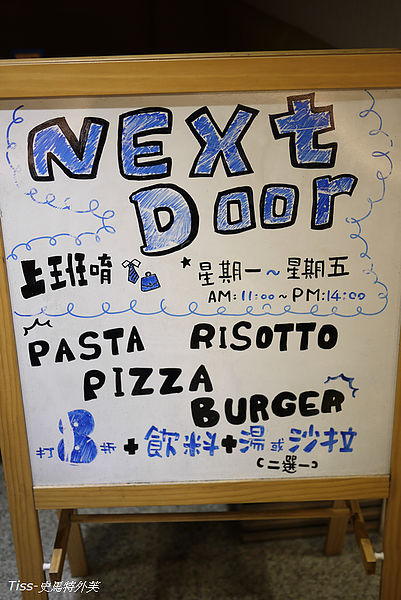 NEXt
Door
上班唷
★星期一～星期五
AM:11:00～PM:14:00
PASTA RISOTTO
PIZZA
BURGER
打8折+飲料+湯或沙拉
(二選一)
Tiss-史馬特外芙